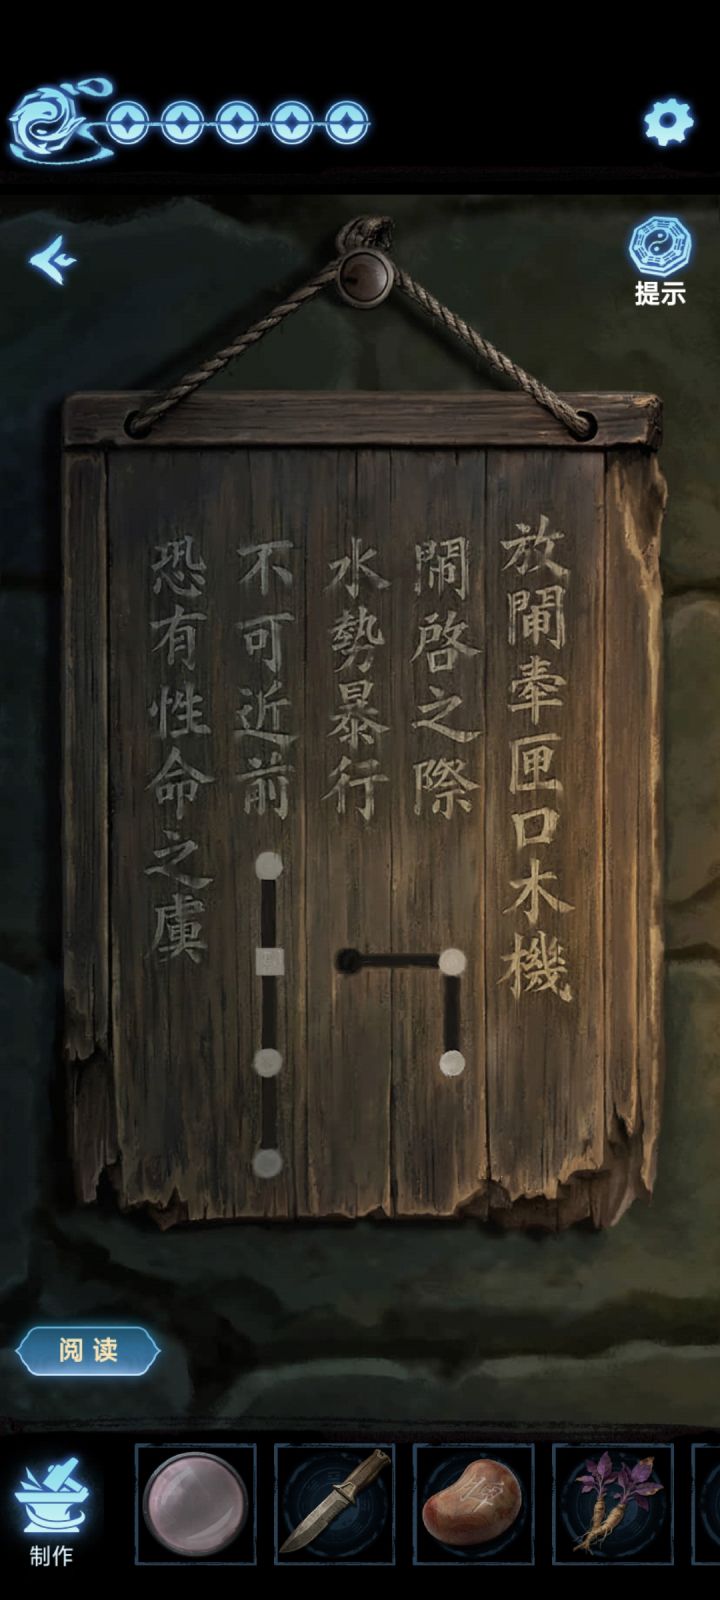 提示
放閘牽匣口木機
閘啓之際
水勢暴行
不可近前
恐有性命之虞
阅读
制作